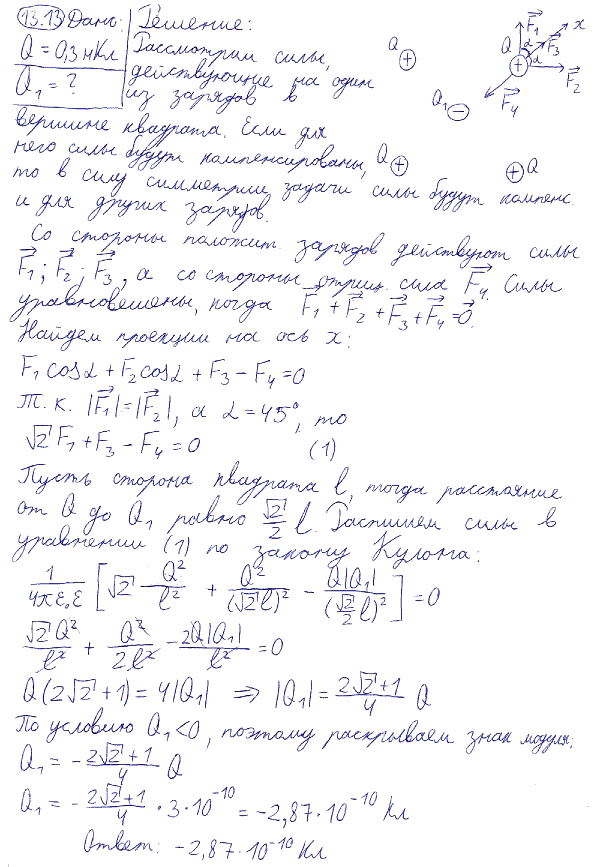 13.13 Дано: Решение:
Q = 0,3 нКл
Q₁ = ?
Рассмотрим силы,
действующие на один
из зарядов в
вершине квадрата. Если для
него силы будут компенсированы,
то в силу симметрии задачи силы будут компенс.
и для других зарядов.
Q
+
Q
+
F⃗₁
α
α
F⃗₃
x
F⃗₂
F⃗₄
Q₁
−
Q
+
+ Q
Со стороны положит. зарядов действуют силы
F⃗₁; F⃗₂; F⃗₃, а со стороны отриц. сила F⃗₄. Силы
уравновешены, когда F⃗₁ + F⃗₂ + F⃗₃ + F⃗₄ = 0⃗.
Найдем проекции на ось x:
F₁ cosα + F₂ cosα + F₃ − F₄ = 0
Т. к. |F⃗₁| = |F⃗₂|, а α = 45°, то
√2 F₁ + F₃ − F₄ = 0 (1)
Пусть сторона квадрата l, тогда расстояние
от Q до Q₁ равно √2/2 l. Распишем силы в
уравнении (1) по закону Кулона:
1/(4πε₀ε) [√2 Q²/l² + Q²/(√2 l)² − Q|Q₁|/(√2/2 l)²] = 0
√2 Q²/l² + Q²/2l² − 2Q|Q₁|/l² = 0
Q(2√2 + 1) = 4|Q₁| ⇒ |Q₁| = (2√2 + 1)/4 Q
По условию Q₁ < 0, поэтому раскрываем знак модуля:
Q₁ = − (2√2 + 1)/4 Q
Q₁ = − (2√2 + 1)/4 · 3 · 10⁻¹⁰ = −2,87 · 10⁻¹⁰ Кл
Ответ: −2,87 · 10⁻¹⁰ Кл